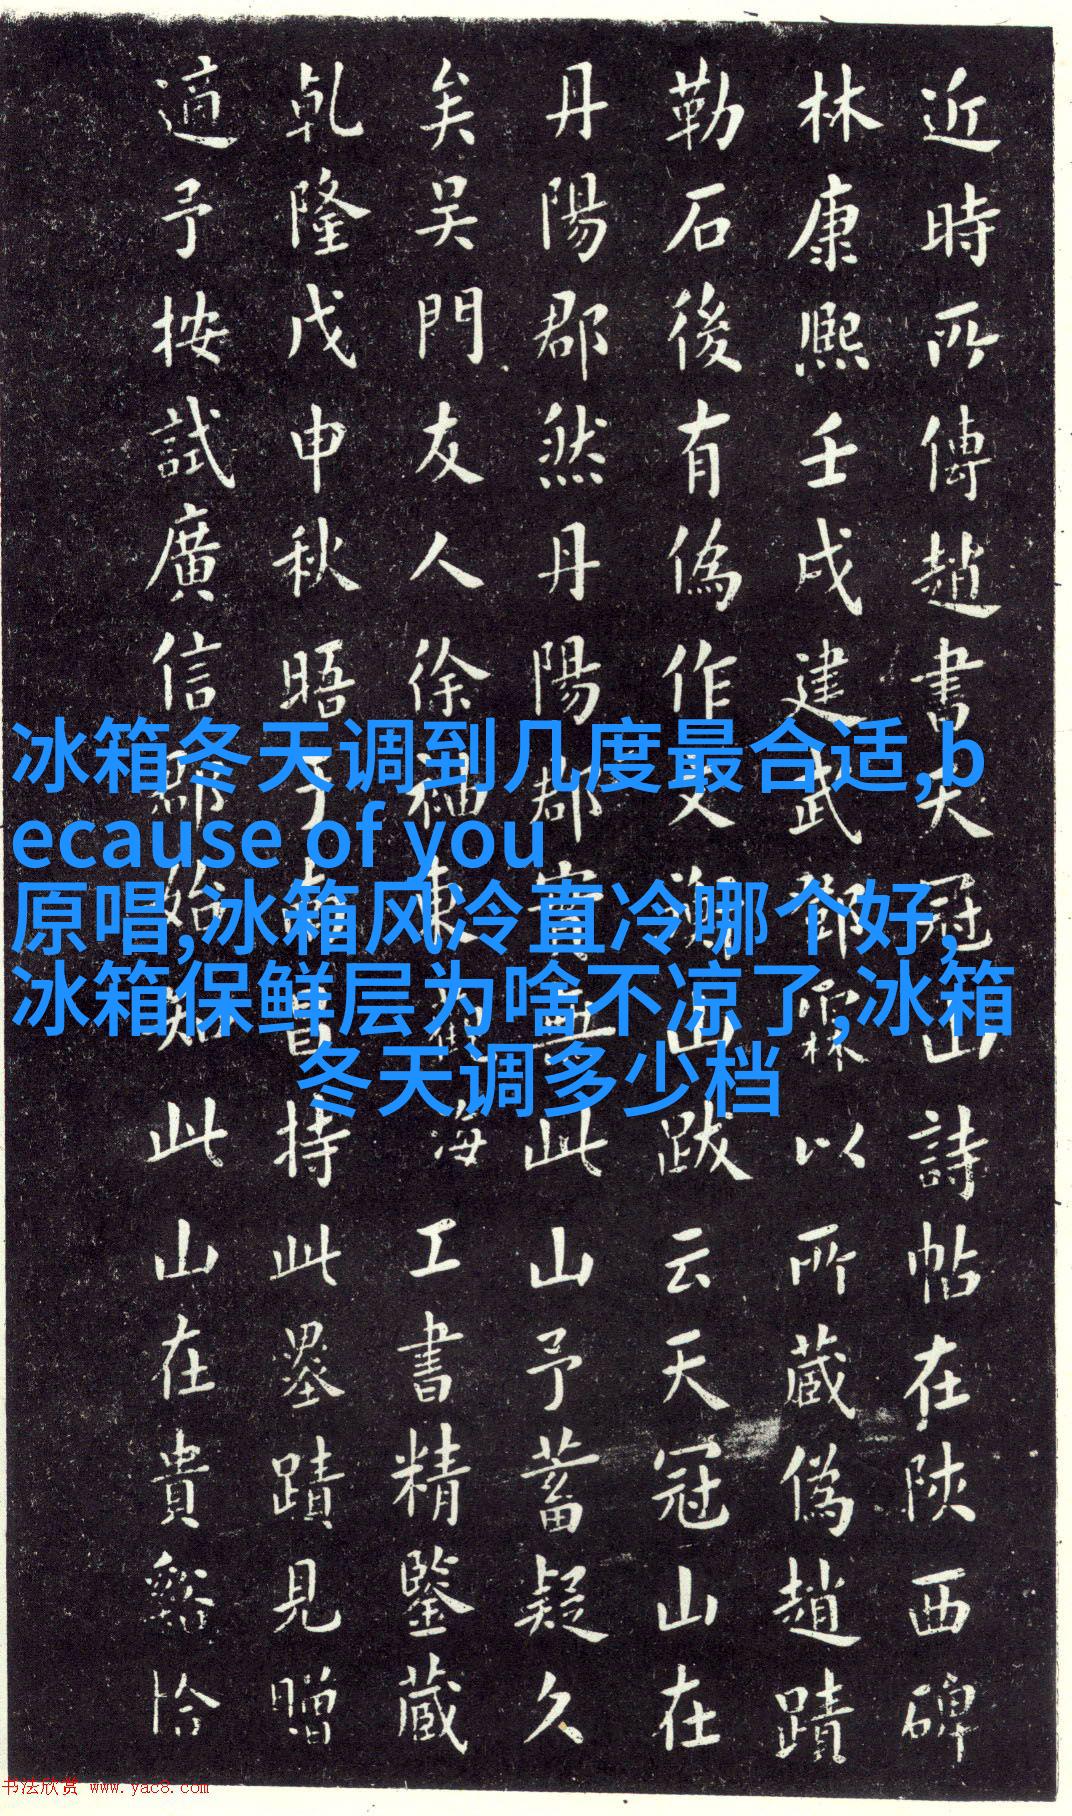 近時所傳趙書天冠山詩帖在陝西碑
林康熙壬戌建武鄧霖以所蔵偽趙蹟
勒石後有偽作文湖山跋云天冠山在
丹陽郡然丹陽郡實無此山予蓄疑久
矣吴門友人徐。東海工書精鑒蔵
乾隆戊申秋晤于南昌持此墨蹟見贈
適予按試廣信郡始知此山在貴谿恰
冰箱冬天调到几度最合适,b
ecause of you
原唱,冰箱风冷直冷哪个好,
冰箱保鲜层为啥不凉了,冰箱
冬天调多少档
书法欣赏 www.yac8.com